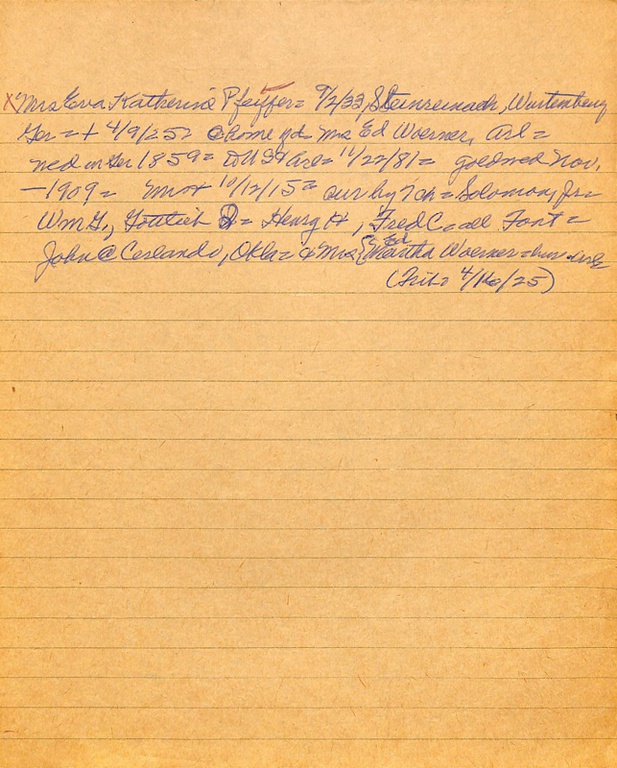 X Mrs Eva Katherine Pfeiffer = 9/2/33, Steinreinach, Wurtemberg
Ger = + 4/9/25 = @ home of Mrs Ed Woerner, Arl =
ned in Ger 1859 = to US & Arl = 11/22/81 = goldned Nov.
- 1909 = Mr + 10/12/15 = sur by 7 ch = Solomon, Jr =
Wm G., Gottlieb J = Henry H, Fred C = all Font =
John @ Cerlando, Okla = & Mrs { Ed Martha Woerner = bur = Arl =
(Trib = 4/16/25)